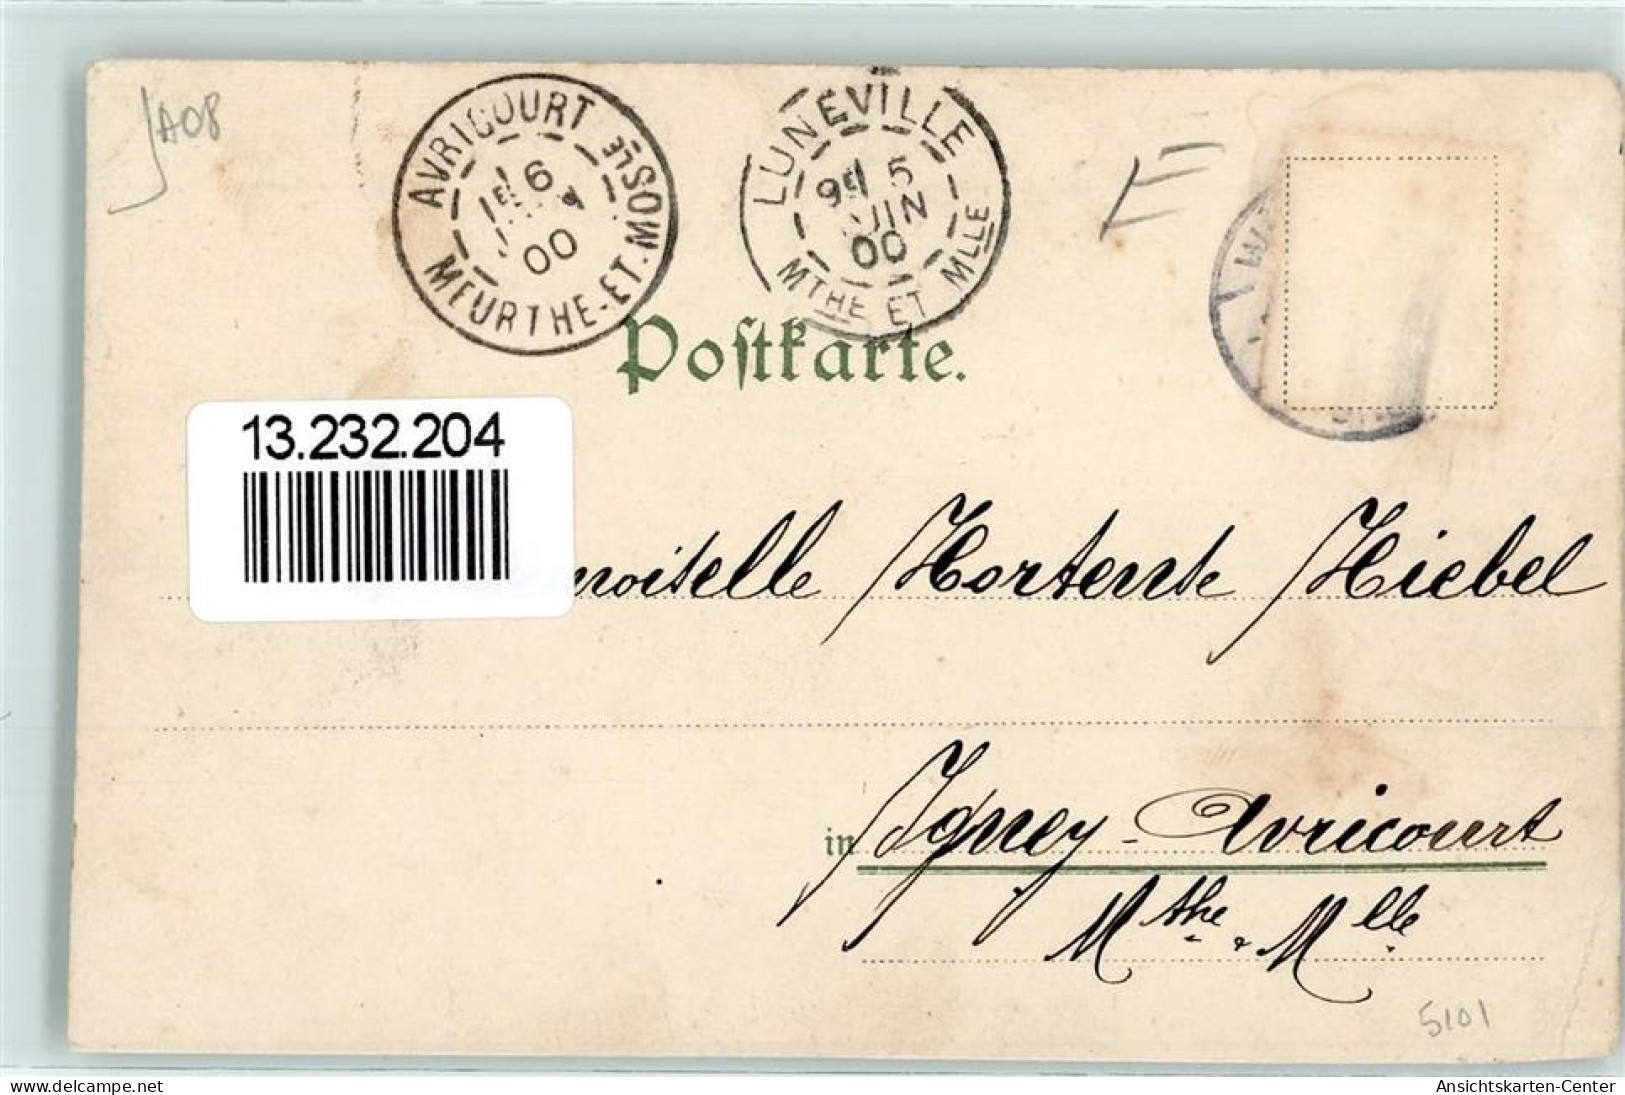 JA08
AVRICOURT
MEURTHE-ET-MOSLLE
6
00
LUNEVILLE
5
JUIN
00
MTHE ET MLLE
E
Poſtkarte.
13.232.204
moiselle Hortense Hiebel
in Igney-Avricourt
Mthe & Mlle
5101
delcampe.net
Ansichtskarten-Center